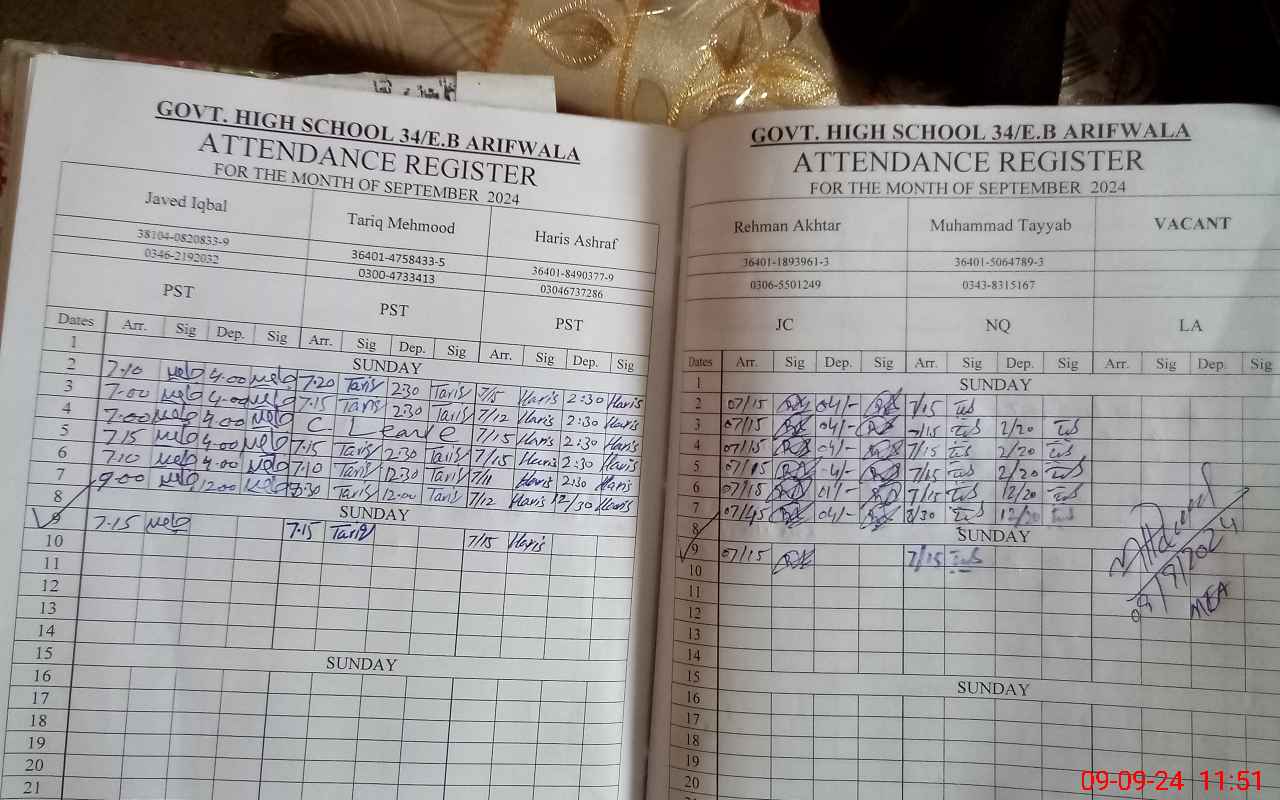 GOVT. HIGH SCHOOL 34/E.B ARIFWALA
ATTENDANCE REGISTER
FOR THE MONTH OF SEPTEMBER 2024
Javed Iqbal Tariq Mehmood Haris Ashraf
38104-0820833-9 36401-4758433-5 36401-8490377-9
0346-2192032 0300-4733413 03046737286
PST PST PST
Dates Arr. Sig Dep. Sig Arr. Sig Dep. Sig Arr. Sig Dep. Sig
1 SUNDAY
2 7-10 4-00 7-20 Tariq 2:30 Tariq 7/5 Haris 2:30 Haris
3 7-00 4-00 7-15 Tariq 2:30 Tariq 7/12 Haris 2:30 Haris
4 7-00 4-00 C Leave 7/15 Haris 2:30 Haris
5 7-15 4-00 7-15 Tariq 2:30 Tariq 7/15 Haris 2:30 Haris
6 7-10 4-00 7-10 Tariq 12:30 Tariq 7/11 Haris 2:30 Haris
7 9-00 1200 7:30 Tariq 12-00 Tariq 7/12 Haris 12/30 Haris
8 SUNDAY
9 7-15 7-15 Tariq 7/15 Haris
10
11
12
13
14
15 SUNDAY
16
17
18
19
20
21
GOVT. HIGH SCHOOL 34/E.B ARIFWALA
ATTENDANCE REGISTER
FOR THE MONTH OF SEPTEMBER 2024
Rehman Akhtar Muhammad Tayyab VACANT
36401-1893961-3 36401-5064789-3
0306-5501249 0343-8315167
JC NQ LA
Dates Arr. Sig Dep. Sig Arr. Sig Dep. Sig Arr. Sig Dep. Sig
1 SUNDAY
2 07/15 04/- 7/15
3 07/15 04/- 7/15 2/20
4 07/15 04/- 7/15 2/20
5 07/15 04/- 7/15 2/20
6 07/15 04/- 7/15 12/20
7 07/45 04/- 8/30 12/20
8 SUNDAY
9 07/15 7/15
10
11
12
13
14
15 SUNDAY
16
17
18
19
20
09/9/2024
MEA
09-09-24 11:51